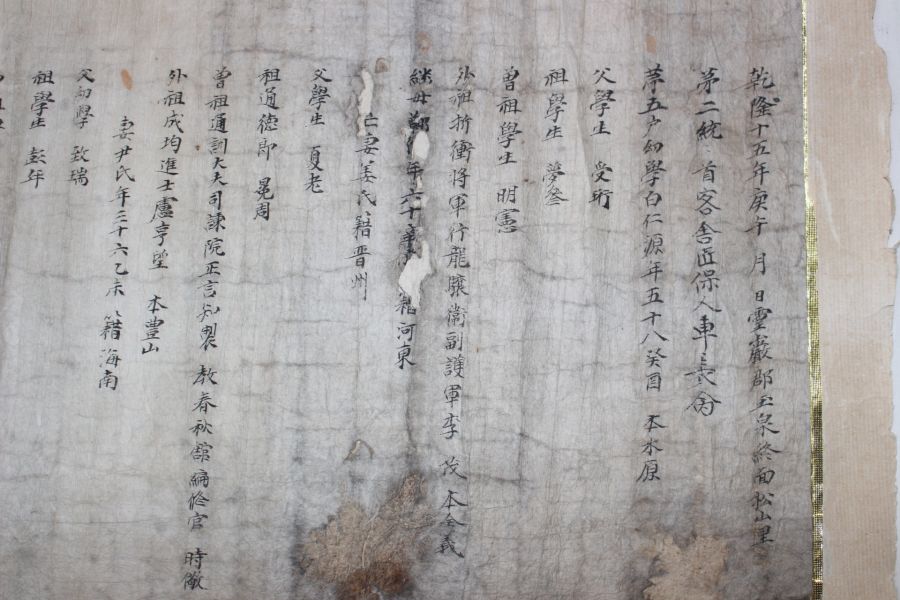 乾隆十五年庚午 月 日靈巖郡玉泉終面松山里
第二統 首客舍匠保人車
第五戶幼學白仁源年五十八癸酉 本水原
父學生 受珩
祖學生 夢參
曾祖學生 明憲
外祖折衝將軍行龍驤衛副護軍李 茂 本全義
繼母鄭 年六十辛 籍河東
亡妻姜氏籍晋州
父學生 夏老
祖通德郎 冕周
曾祖通訓大夫司諫院正言知製 教春秋館編修官 時儆
外祖成均進士盧亨望 本豊山
妻尹氏年三十六乙未 籍海南
父幼學 致瑞
祖學生 彭年